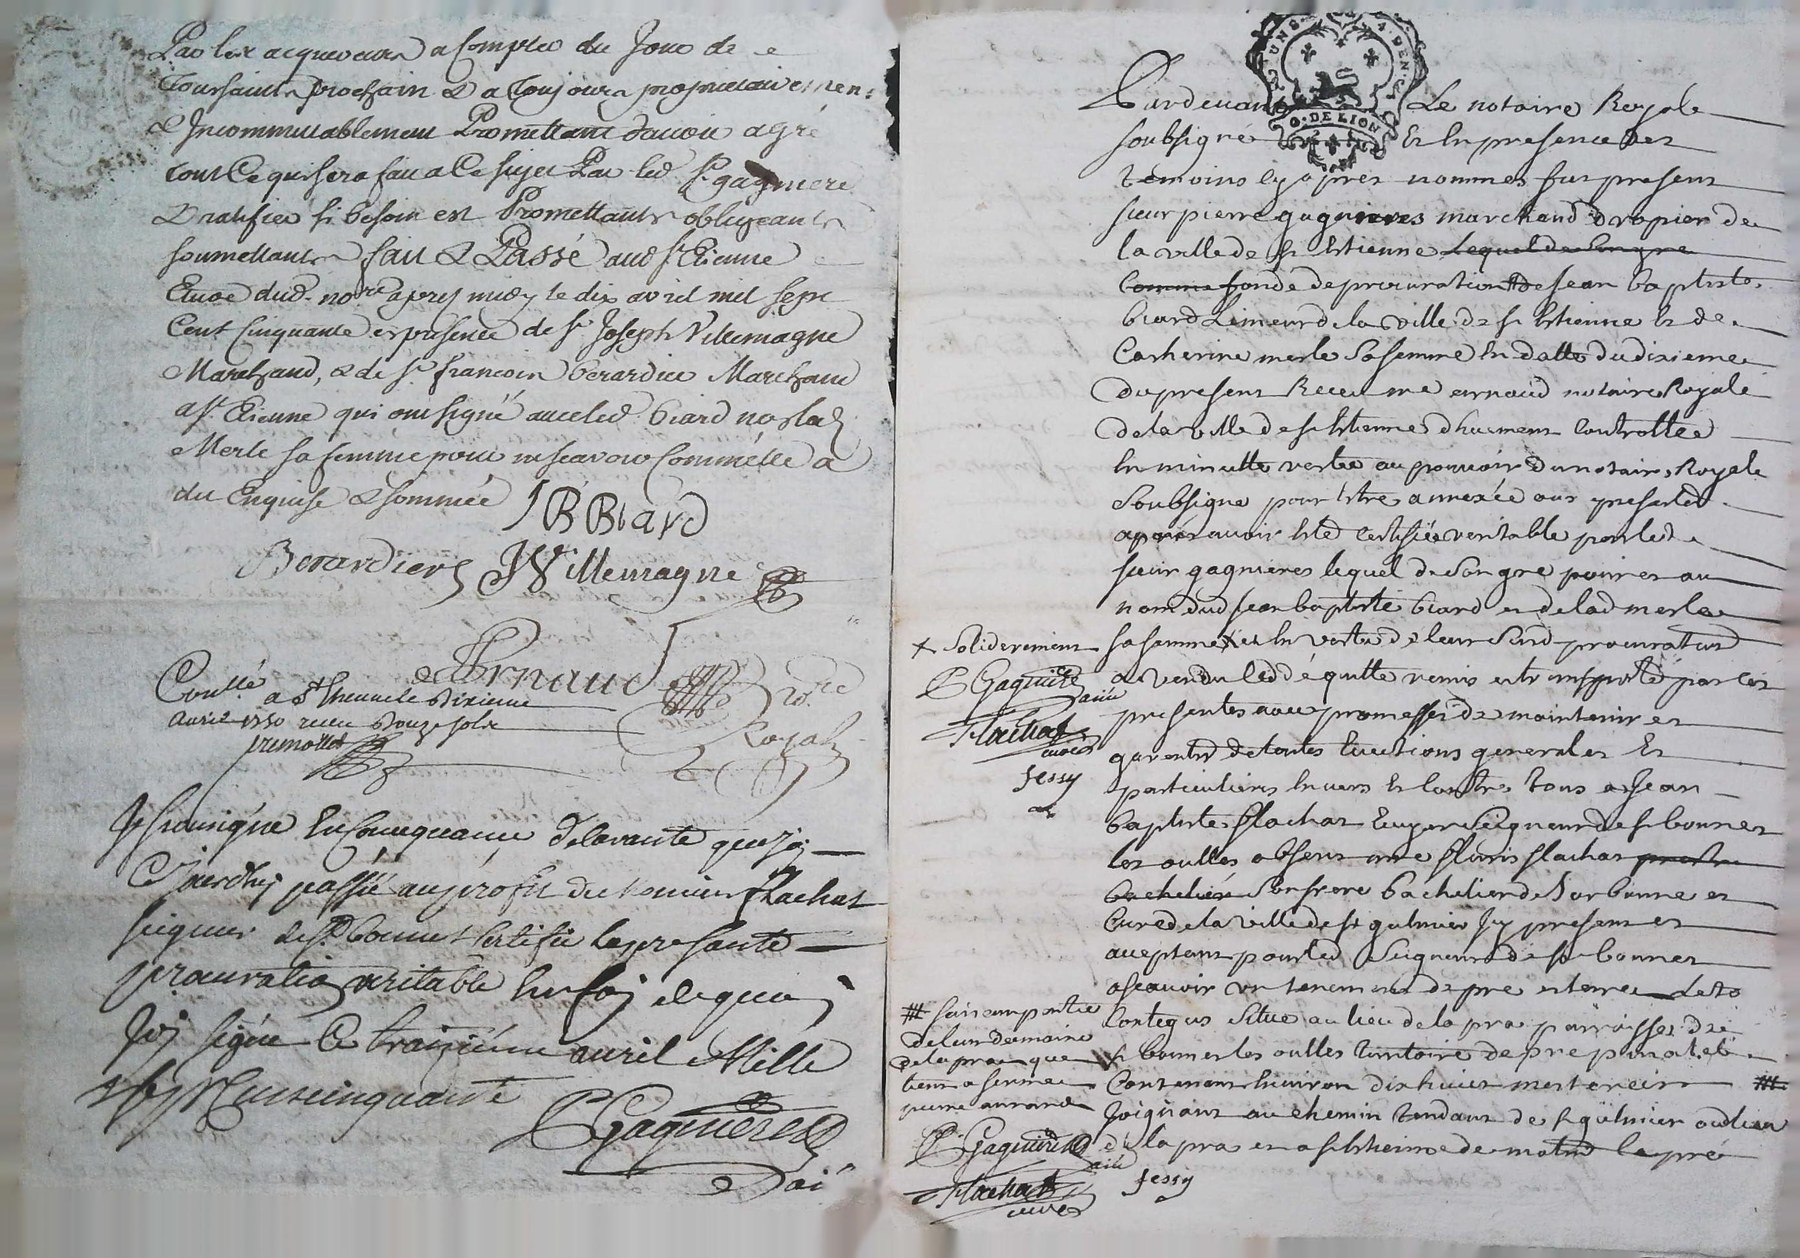 Par les acquereurs a Compter du Jour de
Toussaints prochain & a Toujours proprietairement
& Incommutablement Promettant d'avoir agré
tout Ce qui sera fait a Ce sujet Par led. Sr. gagniere
& ratifier si besoin est Promettants obligeants
soumettants fait & Passé aud St Etienne
Etude dud. nore apres midy le dix avril mil sept
Cent Cinquante en presence de Sr Joseph Villemagne
Marchand, & de Sr. francois berardier Marchand
a St. Etienne qui ont signé avec led. biard non lad.
Merle sa femme pour ne scavoir Comm'elle a
dit Enquise & sommée
JB Biard
Berardier JVillemagne
Arnaud nore
Royal
Conllé a St Etienne le dixieme
avril 1750 receu douze sols
Je soussigné En Consequance de la vante que j'ai
Cejourdhuy passée au profit du sr flachat
seigneur de St bonnet Certifie la presante
procuration veritable En foy de quoy
J'ay signé Ce traiziéme avril Mille
sept Cent cinquante
P Gagniere
ainé
O. DE LION
Pardevant Le notaire Royale
soubsigne Et En presence des
temoins cy apres nommes fut present
sieur pierre gagnieres marchand drapier de
la ville de st Etienne lequel de son gre
Comme fondé de procuration de Jean baptiste
biard de la ville de st Etienne et de
Catherine merle sa femme En datte du dixieme
du present Receu me arnaud notaire Royale
de la ville de st Etienne dhuement Controllee
En minutte restee au pouvoir du notaire Royale
soubsigne pour Estre annexée aux presentes
apres avoir Eté certifiée veritable par led
sieur gagnieres lequel de son gre pour et au
nom dud Jean baptiste biard et de lad merle
sa femme et En vertu de leur procuration
a vendu ced é quitte remis et transporté par ces
presentes avec promesse de maintenir et
garentir de toutes Evictions generales Et
particulieres Envers Et Contre tous a Jean
baptiste flachat Ecuyer Seigneur de st bonnet
les oulles absent me flachat
bachelier Son frere bachelier de Sorbonne et
Curé de la ville de st galmier Icy present et
acceptant pour led Seigneur de st bonnet
a scavoir un tenement de pre et terre
Contegus Situé au lieu de la pra parroisse de
st bonnet les oulles territoire de
Contenant Environ dix huict mesterées
Joignant au chemin tendant de st galmier
de la pra et a st Etienne de matin le pré
× Soliderement
P Gagniere
ainé
Flachat
curé
Jessy
⧻ faisant partie
de leur domaine
de la pra que
tient a ferme
pierre
P Gagniere
ainé
Flachat
curé
Jessy